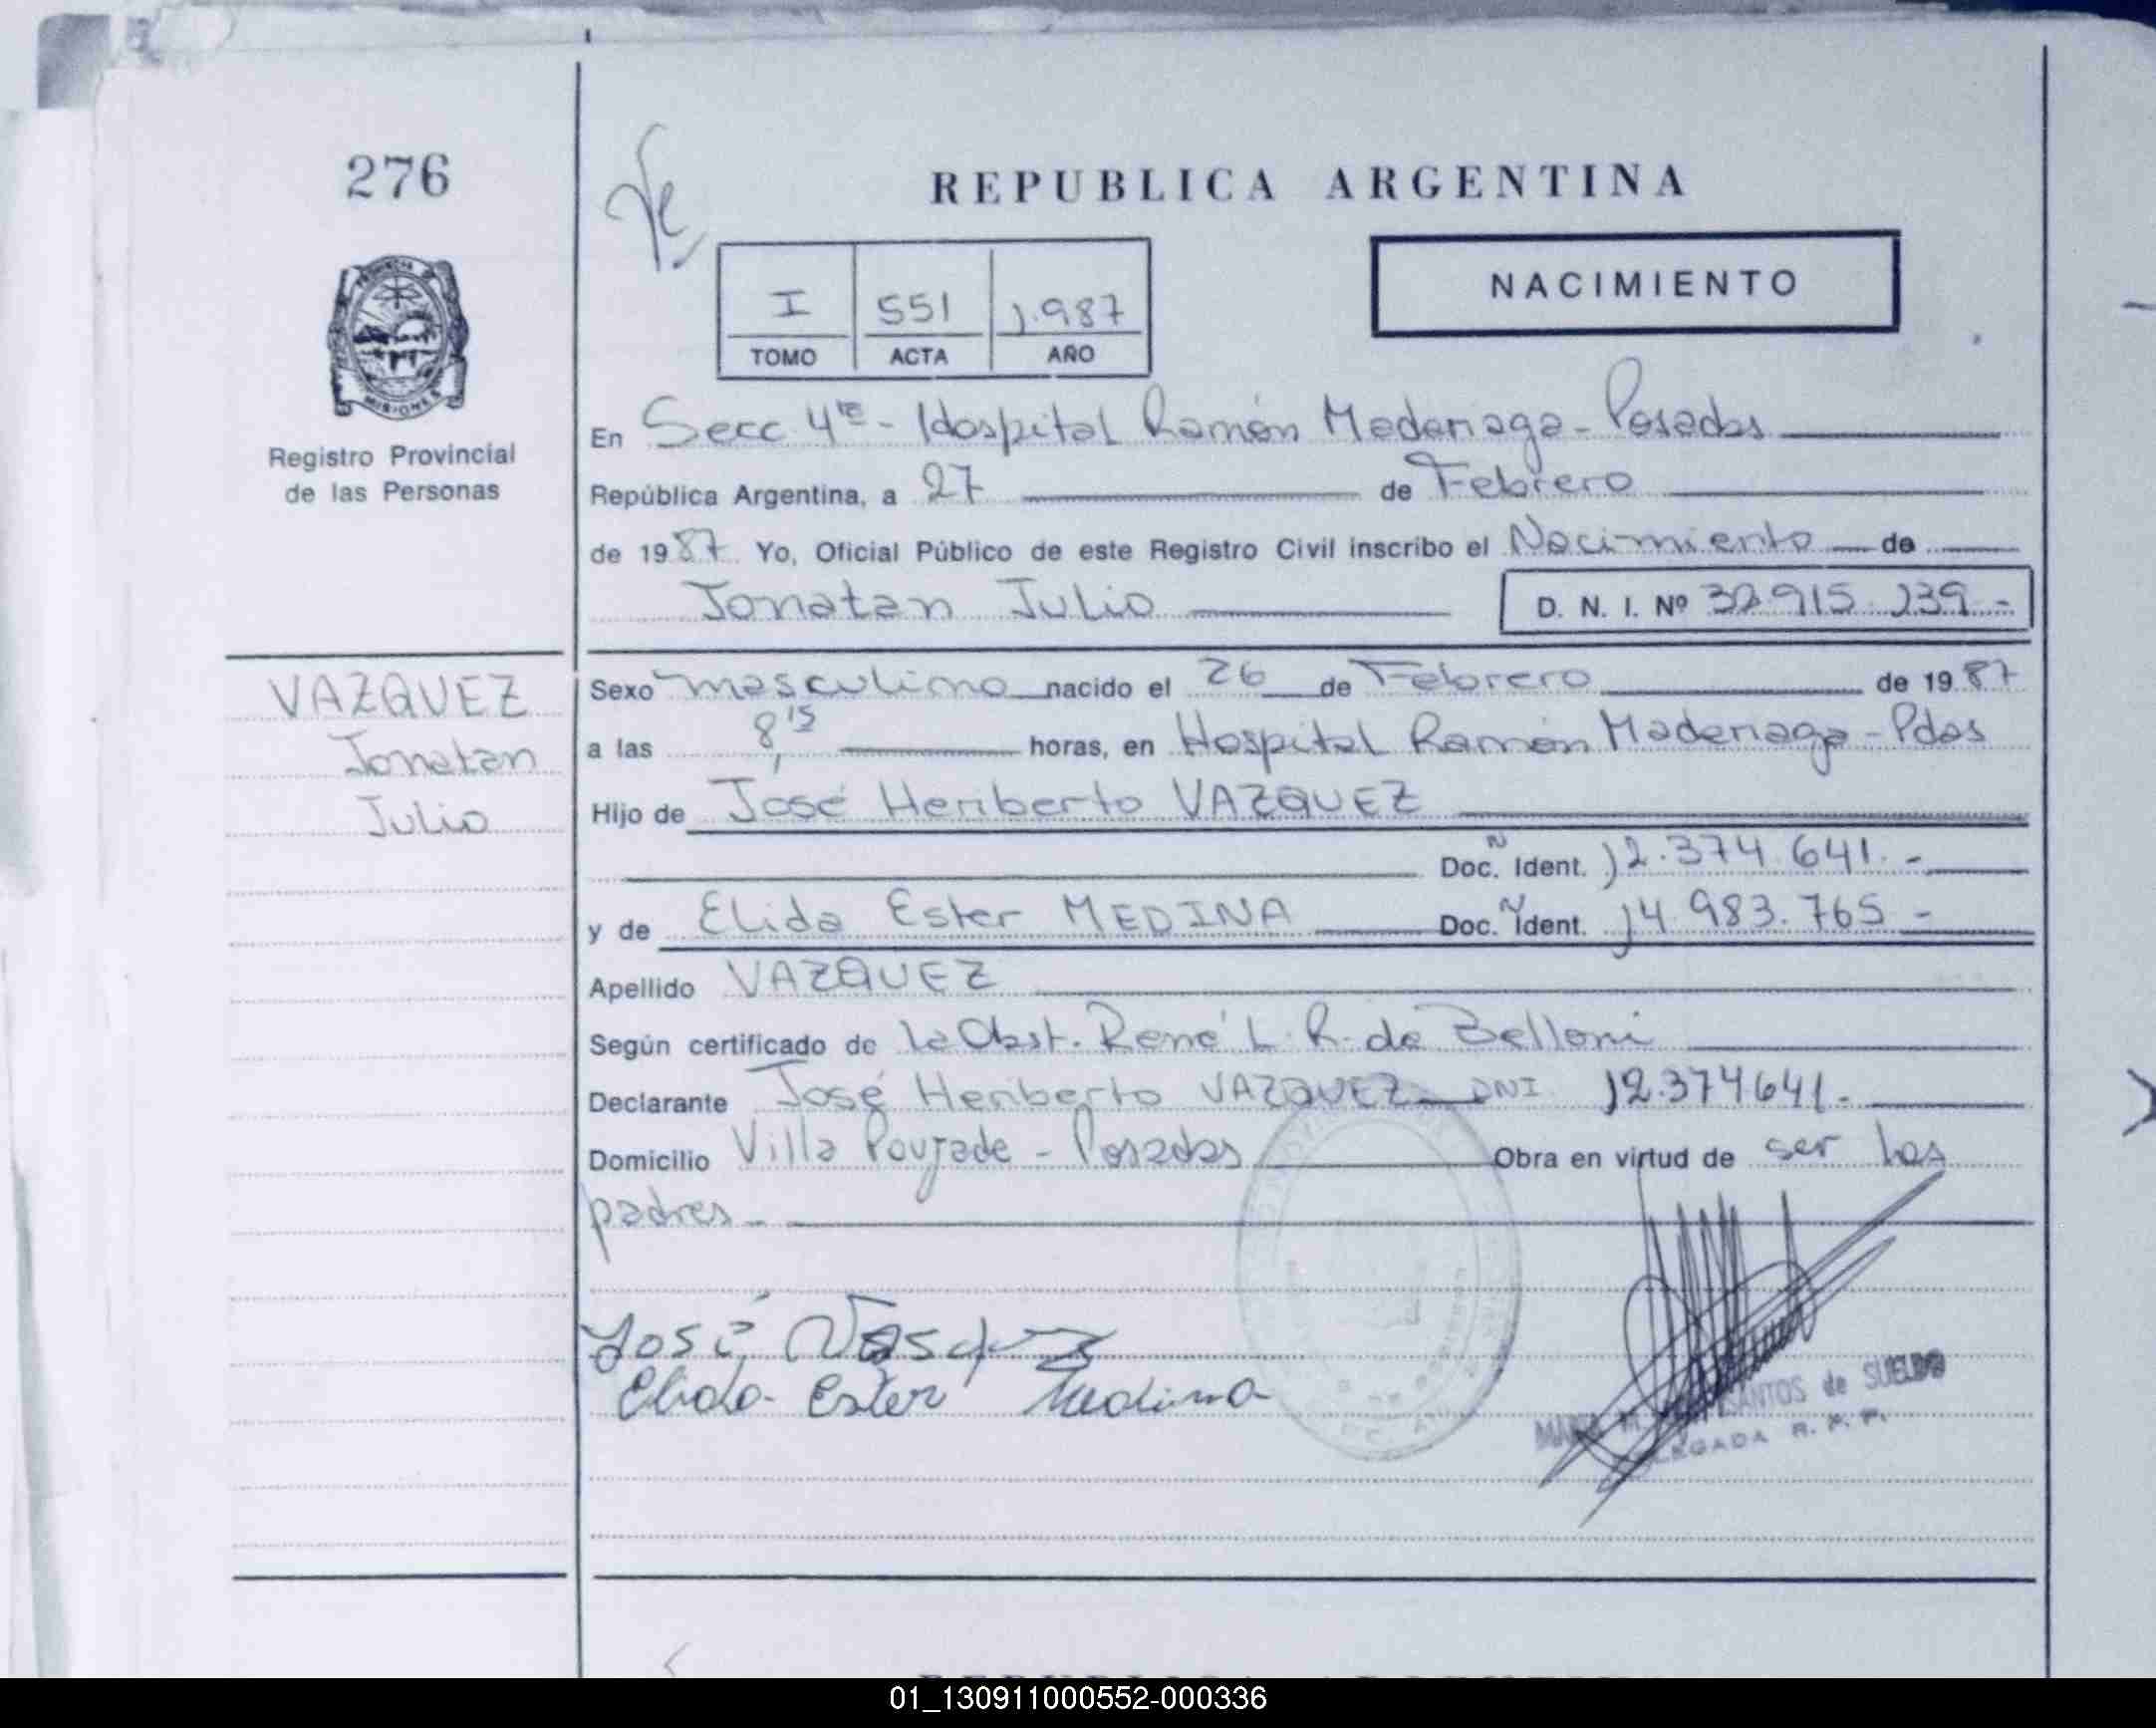 276
REPUBLICA ARGENTINA
NACIMIENTO
I 551 1.987
TOMO ACTA AÑO
PROVINCIA D
MISIONES
Registro Provincial
de las Personas
En Secc 4ta - Hospital Ramón Madariaga - Posadas
República Argentina, a 27 de Febrero
de 1987 Yo, Oficial Público de este Registro Civil inscribo el Nacimiento de
Jonatan Julio D. N. I. Nº 32.915.139.-
VAZQUEZ
Jonatan
Julio
Sexo masculino nacido el 26 de Febrero de 1987
a las 8,15 horas, en Hospital Ramón Madariaga - Pdas
Hijo de José Heriberto VAZQUEZ
Doc. Ident. 12.374.641.-
y de Elida Ester MEDINA Doc. Ident. 14.983.765 -
Apellido VAZQUEZ
Según certificado de la Obst. René L. R. de Belloni
Declarante José Heriberto VAZQUEZ DNI 12.374641.-
Domicilio Villa Poujade - Posadas Obra en virtud de ser los
padres -
José Vasquez
Elida Ester Medina
SANTOS de SUELDO
R. P. P.
01_130911000552-000336